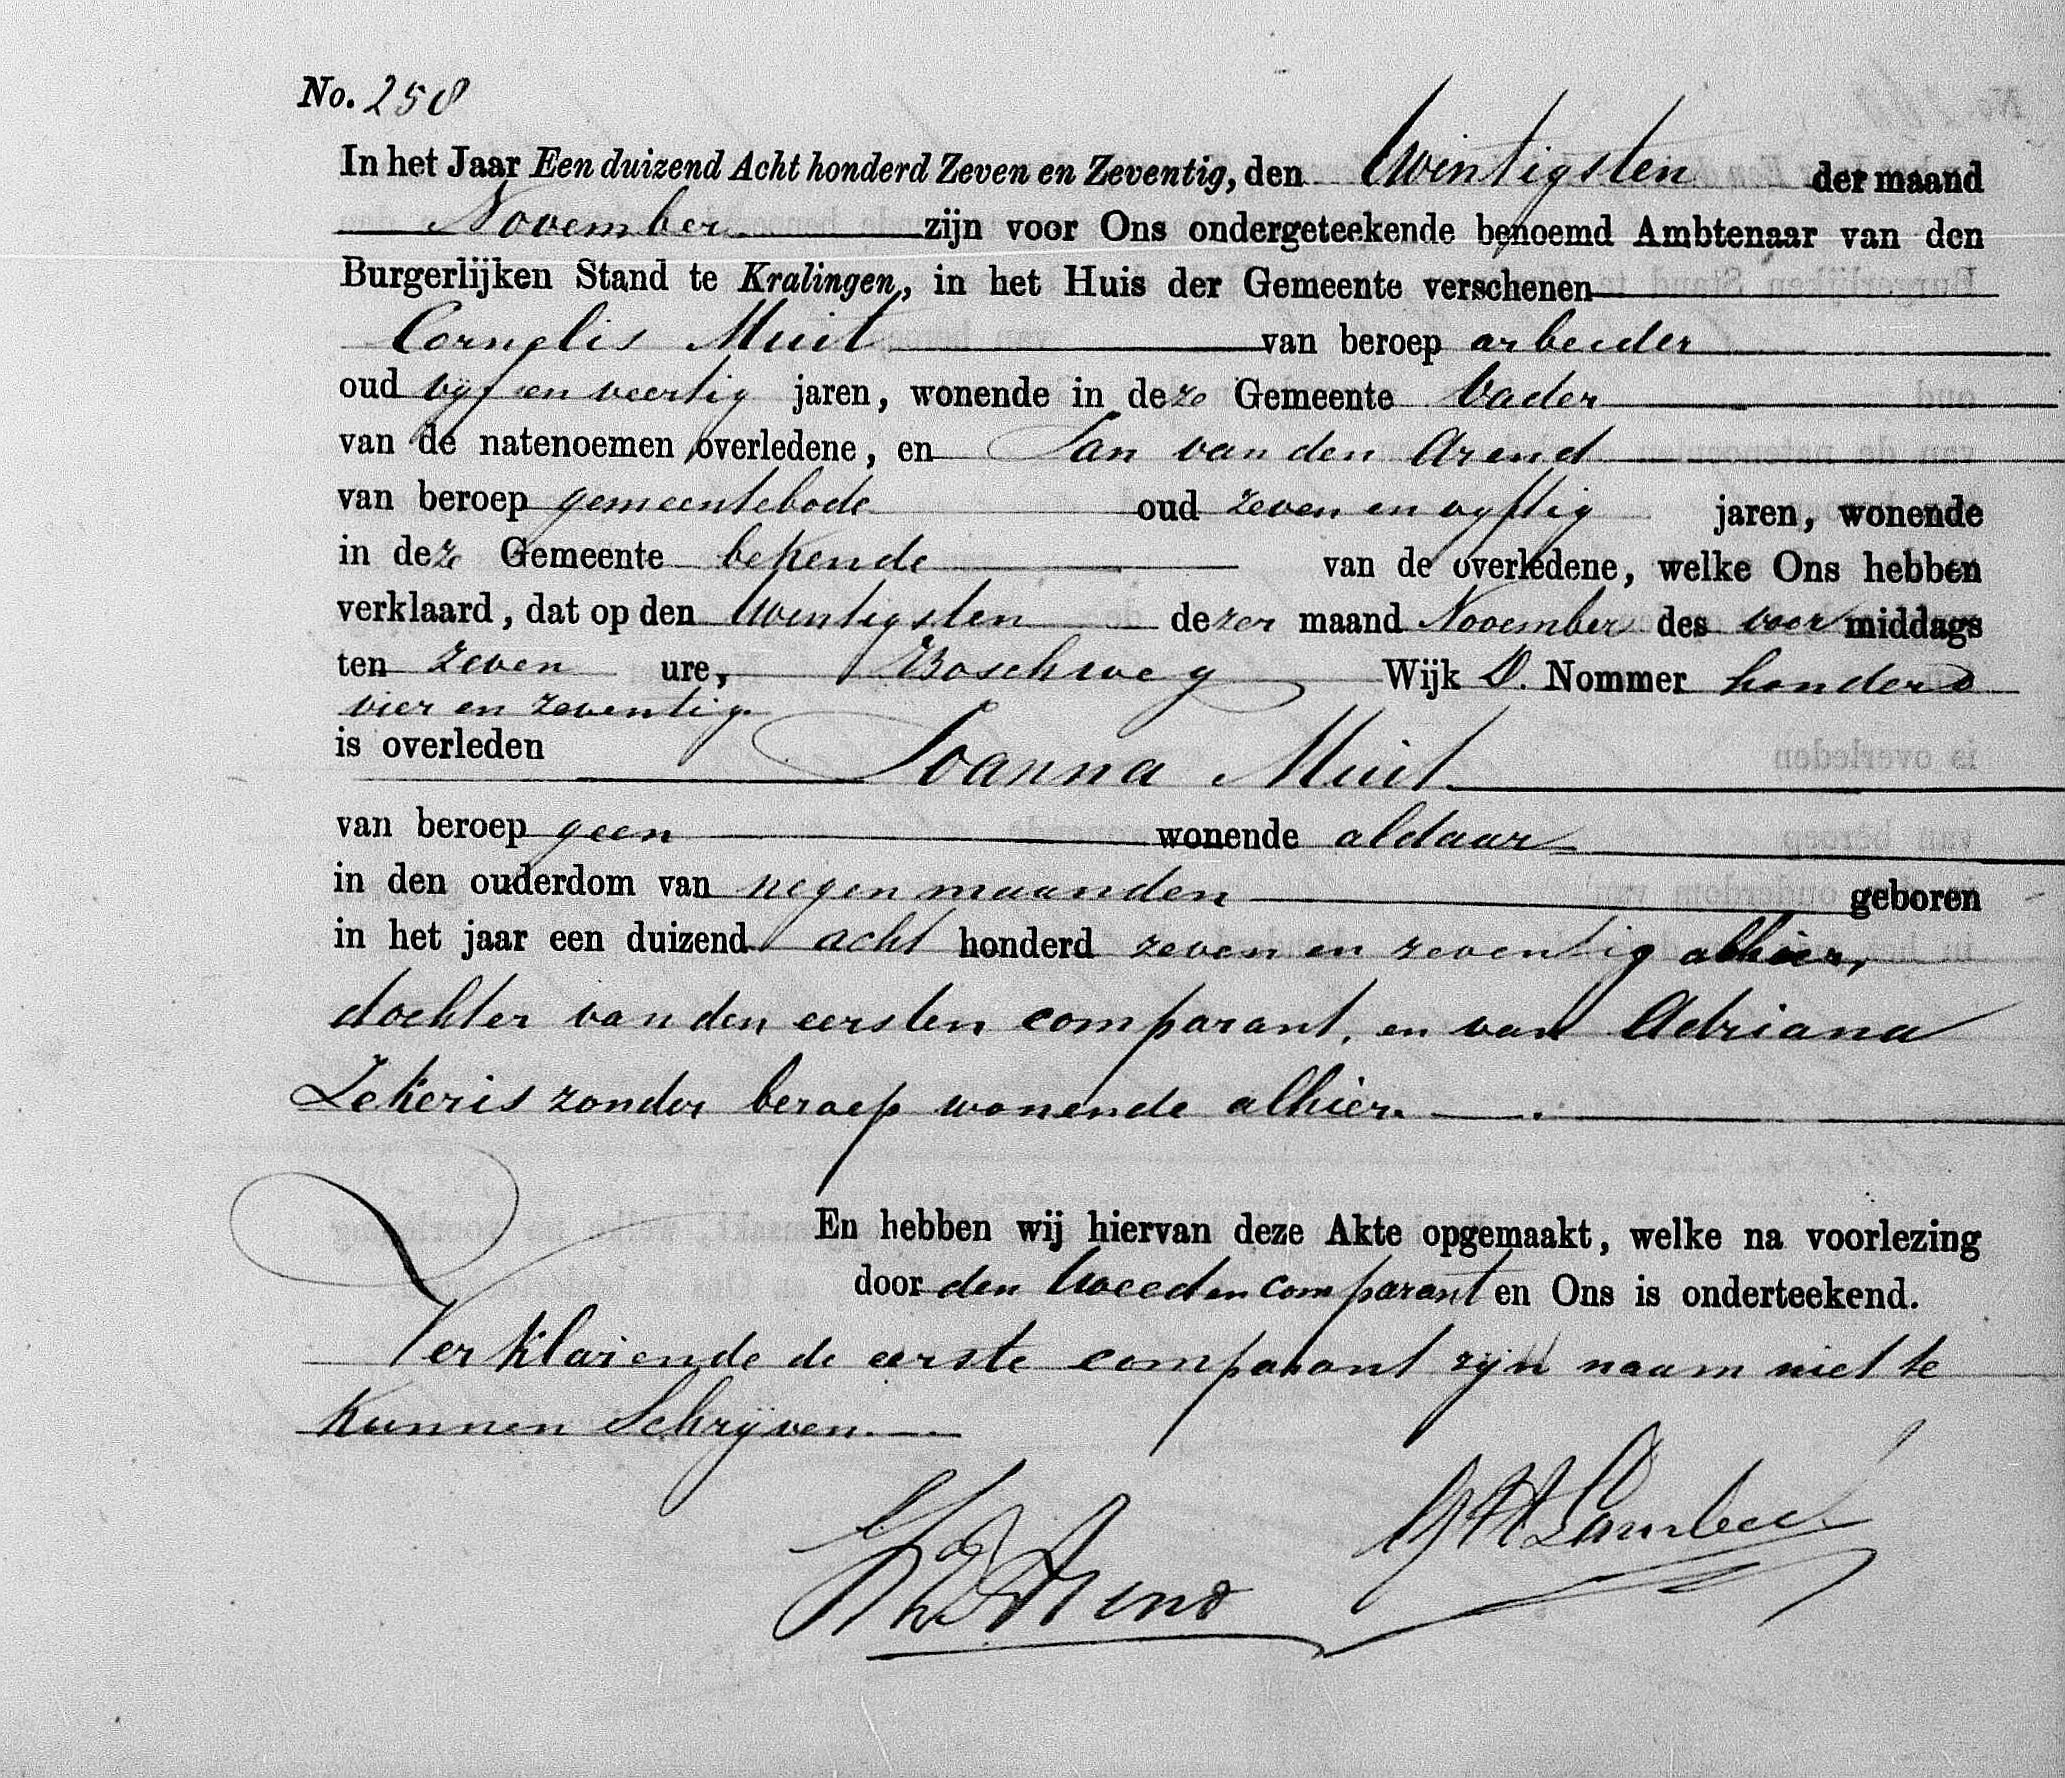 No. 258
In het Jaar Een duizend Acht honderd Zeven en Zeventig, den twintigsten der maand
November zijn voor Ons ondergeteekende benoemd Ambtenaar van den
Burgerlijken Stand te Kralingen, in het Huis der Gemeente verschenen
Cornelis Muit van beroep arbeider
oud vyf en veertig jaren, wonende in deze Gemeente vader
van de natenoemen overledene, en Jan van den Arend
van beroep gemeentebode oud zeven en vyftig jaren, wonende
in deze Gemeente bekende van de overledene, welke Ons hebben
verklaard, dat op den twintigsten dezer maand November des voor middags
ten zeven ure, Boschweg Wijk D. Nommer honderd
vier en zeventig.
is overleden Joanna Muit
van beroep geen wonende aldaar
in den ouderdom van negen maanden geboren
in het jaar een duizend acht honderd zeven en zeventig alhier,
dochter van den eersten comparant, en van Adriana
Lekeris zonder beroep wonende alhier.
En hebben wij hiervan deze Akte opgemaakt, welke na voorlezing
door den tweeden comparant en Ons is onderteekend.
Verklarende de eerste comparant zyn naam niet te
kunnen schryven.
Arend